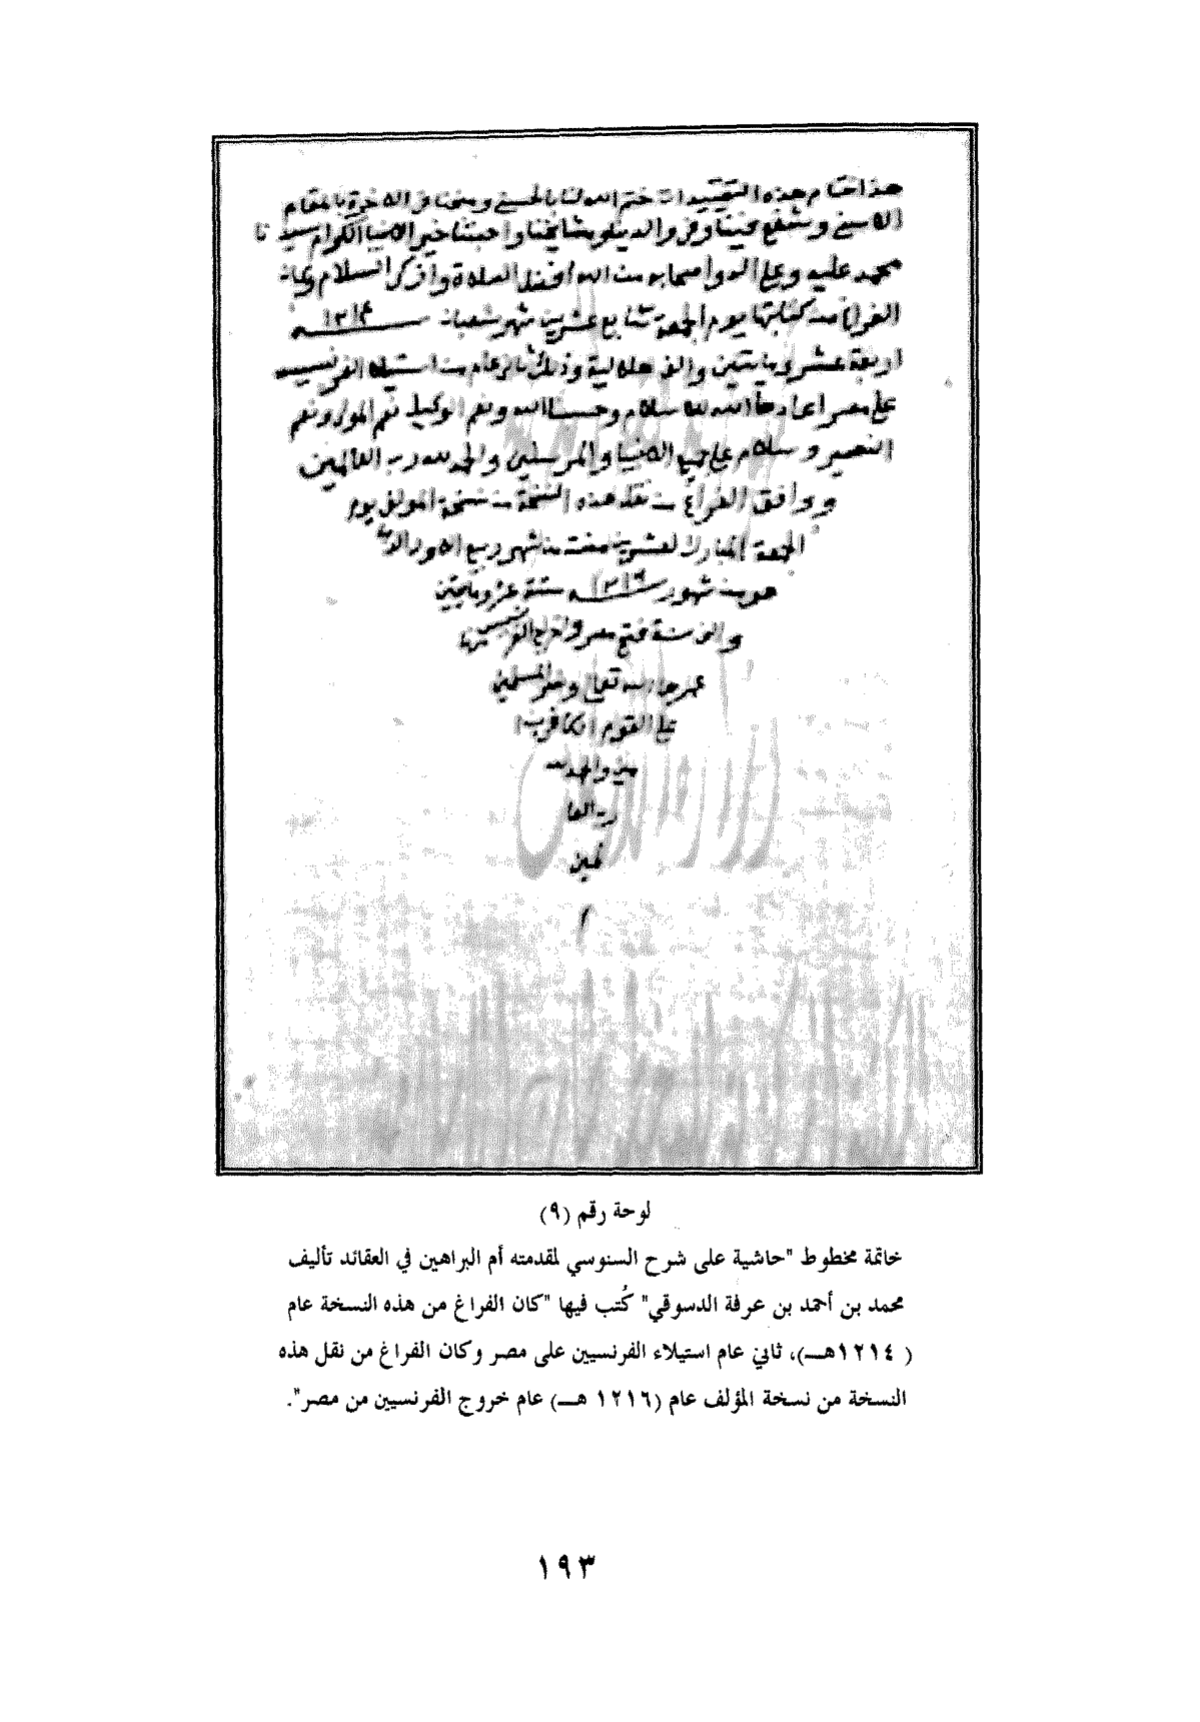 هذا ختام هذه التقييدات ختم الله لنا بالحسنى ومتعنا في الاخرة بالمقام
الاسنى وشفع فينا وفي والدينا ومشايخنا واحبتنا خير الانبيا الكرام سيدنا
محمد عليه وعلى اله واصحابه من الله افضل الصلاة وازكى السلام وكان
الفراغ من كتابتها يوم الجمعة سابع عشرين شهر شعبان ١٢١٤ سنة
اربعة عشر ومايتين والف هلالية وذلك ثاني عام من استيلاء الفرنسيس
على مصر اعادها الله للاسلام وحسبنا الله ونعم الوكيل نعم المولى ونعم
النصير وسلام على جميع الانبيا والمرسلين والحمد لله رب العالمين
ووافق الفراغ من نقل هذه النسخة من نسخة المولف يوم
الجمعة المبارك لعشرين مضت من شهر ربيع الاول الذي
هو من شهور سنة ١٢١٦ ستة عشر ومايتين
والف سنة فتح مصر واخراج الفرنسيس منها
الله تعالى ونصر المسلمين
على القوم الكافرين
مين والحمد لله
رب العا
لمين
لوحة رقم (٩)
خاتمة مخطوط "حاشية على شرح السنوسي لمقدمته أم البراهين في العقائد تأليف
محمد بن أحمد بن عرفة الدسوقي" كُتب فيها "كان الفراغ من هذه النسخة عام
(١٢١٤هـــ)، ثاني عام استيلاء الفرنسيين على مصر وكان الفراغ من نقل هذه
النسخة من نسخة المؤلف عام (١٢١٦ هـــ) عام خروج الفرنسيين من مصر".
١٩٣